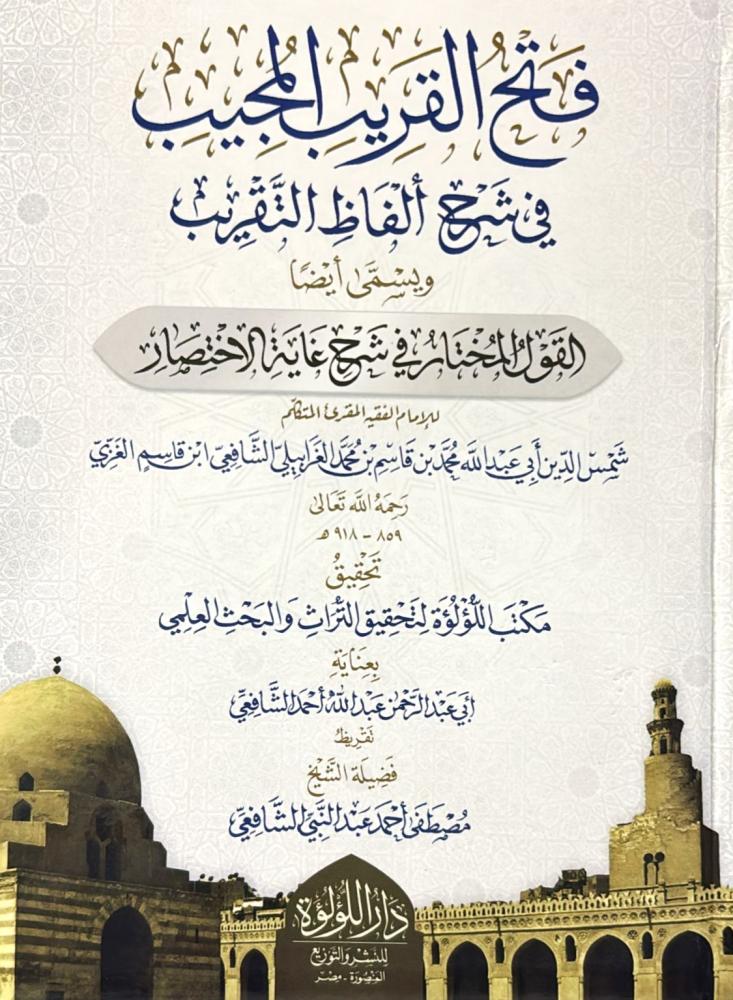 فَتْحُ القَرِيبِ المُجِيبِ
فِي شَرْحِ أَلْفَاظِ التَّقْرِيبِ
ويسمَّى أيضًا
القَوْلُ المُخْتَارُ فِي شَرْحِ غَايَةِ الاخْتِصَارِ
للإمام الفقيه المقرئ المتكلم
شَمْسِ الدِّينِ أَبِي عَبْدِ اللَّهِ مُحَمَّدِ بْنِ قَاسِمِ بْنِ مُحَمَّدٍ الغَرَابِيلِيِّ الشَّافِعِيِّ ابْنِ قَاسِمٍ الغَزِّيِّ
رَحِمَهُ اللَّهُ تَعَالَى
٨٥٩ - ٩١٨ هـ
تَحْقِيقُ
مَكْتَبِ اللُّؤْلُؤَةِ لِتَحْقِيقِ التُّرَاثِ وَالبَحْثِ العِلْمِي
بِعِنَايَةِ
أَبِي عَبْدِ الرَّحْمَنِ عَبْدِ اللَّهِ أَحْمَدَ الشَّافِعِيِّ
تَقْرِيظُ
فَضِيلَةِ الشَّيْخِ
مُصْطَفَى أَحْمَد عَبْدِ النَّبِيِّ الشَّافِعِيِّ
دَارُ اللُّؤْلُؤَةِ
لِلنَّشْرِ وَالتَّوْزِيعِ
المَنْصُورَة - مِصْر